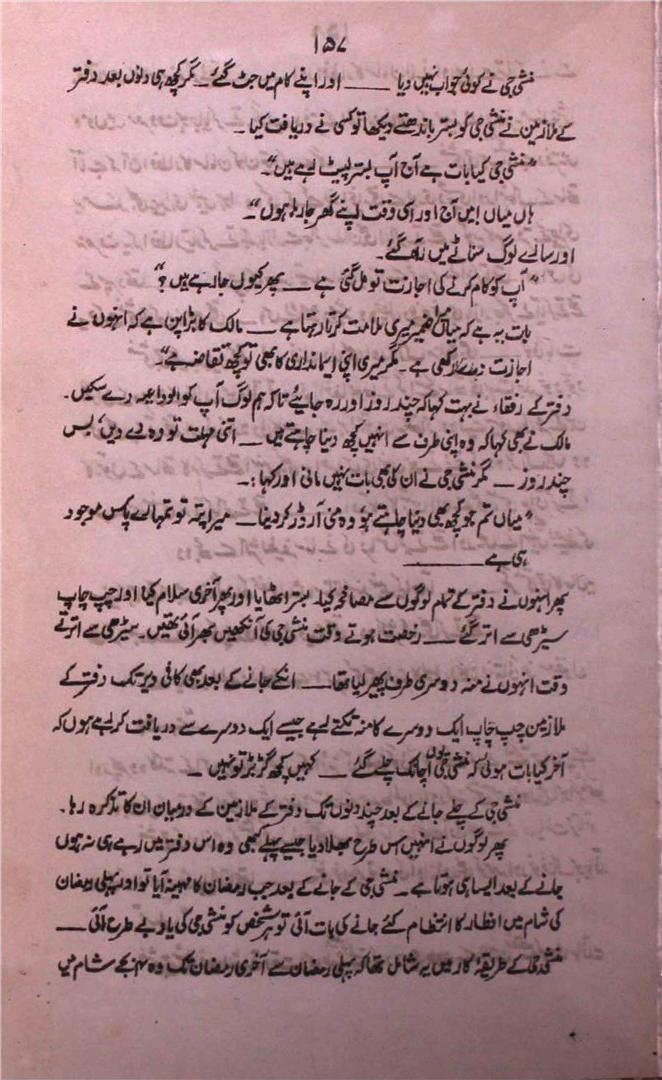 ۱۵۷
منشی جی نے کوئی جواب نہیں دیا ــــــ اور اپنے کام میں جٹ گئے ۔ مگر کچھ ہی دنوں بعد دفتر
کے ملازمین نے منشی جی کو بستر باندھتے دیکھا تو کسی نے دریافت کیا ۔
"منشی جی کیا بات ہے آج آپ بستر لپیٹ رہے ہیں"۔
ہاں میاں! میں آج اور اسی وقت اپنے گھر جا رہا ہوں"۔
اور سارے لوگ سناٹے میں رہ گئے۔
"آپ کو کام کرنے کی اجازت تو مل گئی ہے ــــ پھر کیوں جا رہے ہیں؟"
بات یہ ہے کہ میاں! ضمیر میری ملامت کرتا رہتا ہے ــــ مالک کا بڑا پن ہے کہ انہوں نے
اجازت دے رکھی ہے ۔ مگر میری اپنی ایمانداری کا بھی تو کچھ تقاضہ ہے"۔
دفتر کے رفقاء نے بہت کہا کہ چند روز اور رہ جایئے تاکہ ہم لوگ آپ کو الوداعیہ دے سکیں۔
مالک نے بھی کہا کہ وہ اپنی طرف سے انہیں کچھ دینا چاہتے ہیں ــــ اتنی مہلت تو وہ دے دیں، بس
چند روز ــــ مگر منشی جی نے ان کی بھی بات نہیں مانی اور کہا :۔
"میاں تم جو کچھ بھی دینا چاہتے ہو وہ منی آرڈر کر دینا ــــ میرا پتہ تو تمہارے پاس موجود
ہی ہے ــــــــ
پھر انہوں نے دفتر کے تمام لوگوں سے مصافحہ کیا۔ بستر اٹھایا اور پھر آخری سلام کیا اور چپ چاپ
سیڑھی سے اتر گئے ــــ رخصت ہوتے وقت منشی جی کی آنکھیں بھر آئی تھیں۔ سیڑھی سے اترتے
وقت انہوں نے منہ دوسری طرف پھیر لیا تھا ــــ انکے جانے کے بعد بھی کافی دیر تک دفتر کے
ملازمین چپ چاپ ایک دوسرے کا منہ تکتے رہے جیسے ایک دوسرے سے دریافت کر رہے ہوں کہ
آخر کیا بات ہوئی کہ منشی جی یوں اچانک چلے گئے ــــ کہیں کچھ گڑبڑ تو نہیں ــ
منشی جی کے چلے جانے کے بعد چند دنوں تک دفتر کے ملازمین کے درمیان ان کا تذکرہ رہا۔
پھر لوگوں نے انہیں اس طرح بھلا دیا جیسے پہلے کبھی وہ اس دفتر میں رہے ہی نہ ہوں
جانے کے بعد ایسا ہی ہوتا ہے ۔ منشی جی کے جانے کے بعد جب رمضان کا مہینہ آیا تو اور پہلی رمضان
کی شام میں افطار کا انتظام کئے جانے کی بات آئی تو ہر شخص کو منشی جی کی یاد بے طرح آئی ــــ
منشی جی کے طریقۂ کار میں یہ شامل تھا کہ پہلی رمضان سے آخری رمضان تک وہ سہ بجے شام میں